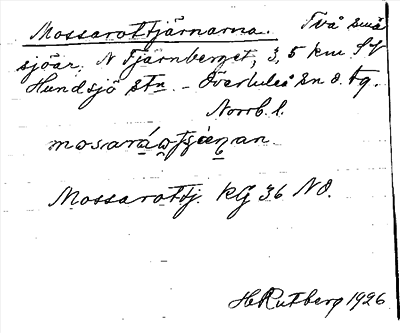 Mossarottjärnarna. Två små
sjöar, N Tjärnberget, 3,5 km SV
Hundsjö stn. - Överluleå sn o. tg.
Norrb. l.
Mossarottj. KG 36 NO.
H Rutberg 1926